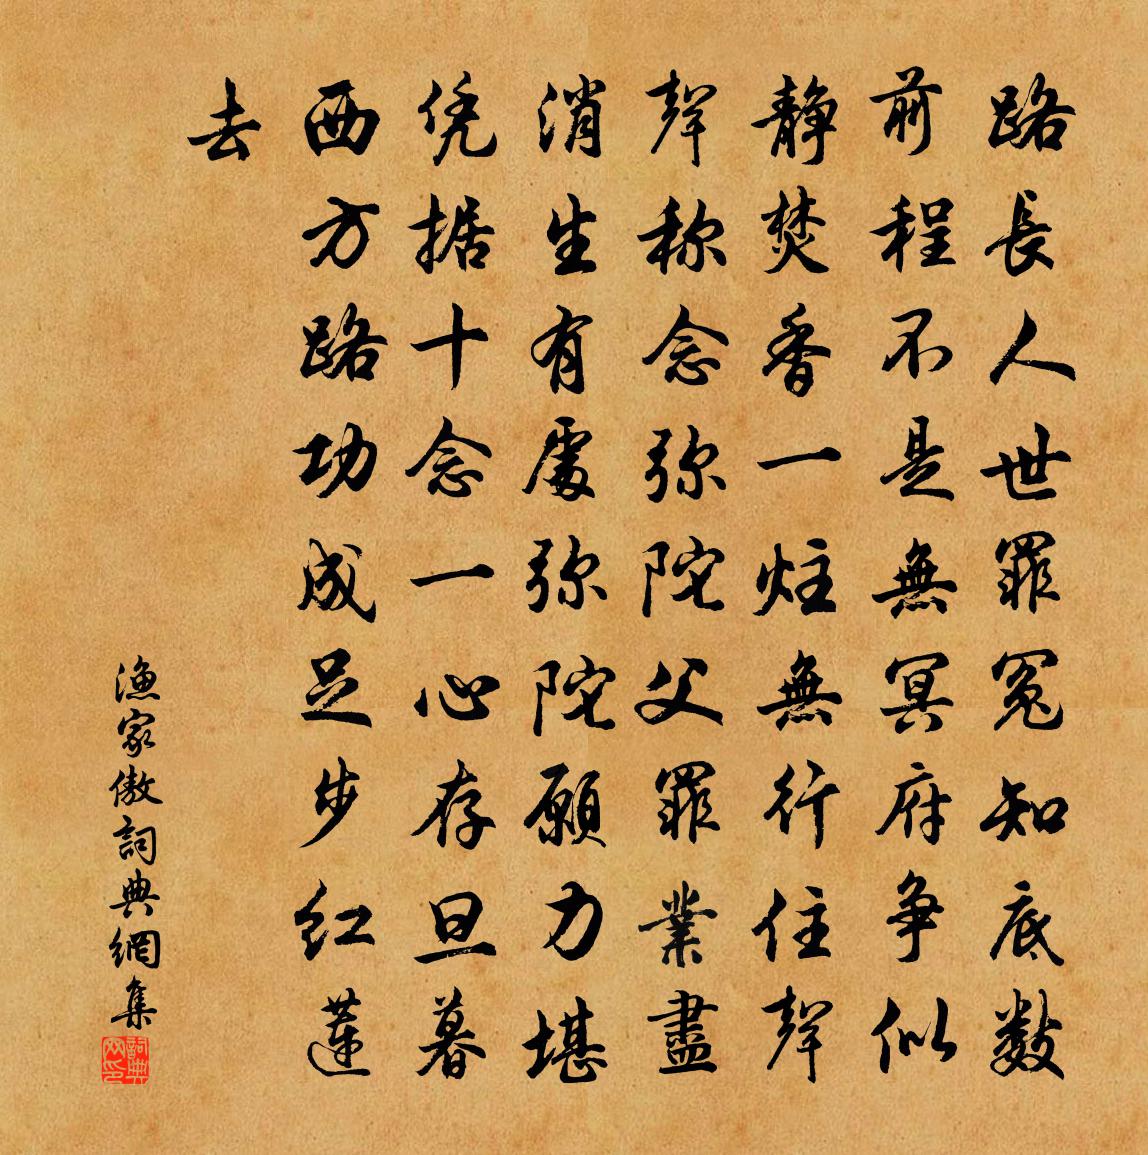 路長人世罪冤知底數
前程不是無冥府争似
静焚香一炷無行住聲
聲称念弥陀父罪業盡
消生有處弥陀願力堪
凭据十念一心存旦暮
西方路功成足步红蓮
去
漁家傲詞典網集
詞典网印